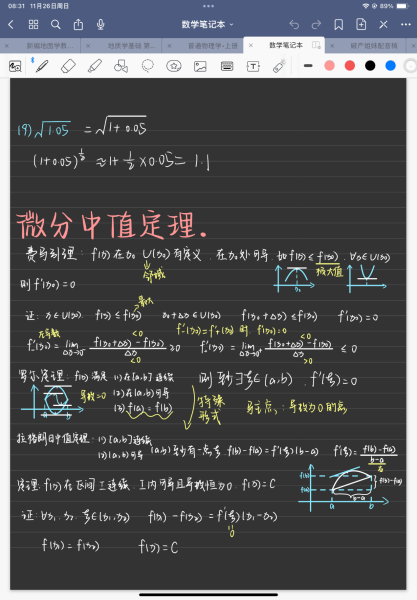 08:31 11月26日周日
89%
数学笔记本
新编地图学教... 地质学基础 第... 普通物理学·上册 数学笔记本 破产姐妹配音频
(9) √1.05 = √1+0.05
(1+0.05)^½ ≈ 1+½×0.05= 1.1
微分中值定理.
费马引理: f(x)在x₀ U(x₀)有定义. 在x₀处可导. 如f(x)≤f(x₀). ∀x∈U(x₀)
邻域
极大值
则f'(x₀)=0
最大
证: x∈U(x₀). f(x)≤f(x₀) x₀+Δx∈U(x₀) f(x₀+Δx)≤f(x₀) f'(x₀)=0
左导数 f'₋(x₀)=f'₊(x₀) 时 f'(x₀)=0
f'₋(x₀)= lim Δx→0⁻ f(x₀+Δx)-f(x₀) / Δx ≥0 f'₊(x₀)= lim Δx→0⁺ f(x₀+Δx)-f(x₀) / Δx ≤0
<0 <0 <0 >0
罗尔定理: f(x)满足 (1)在[a,b]连续 则至少∃ξ∈(a,b). f'(ξ)=0
导数=0 (2)在(a,b)可导
(3) f(a)=f(b)
特殊形式
驻点: 导数为0的点
拉格朗日中值定理: (1)[a,b]连续
(2)(a,b)可导 (a,b)至少有一点ξ f(b)-f(a)=f'(ξ)(b-a) f'(ξ)= f(b)-f(a) / b-a
定理: f(x)在区间I连续. I内可导且导数恒为0. f(x)=C
f(b) f(a) f(b)-f(a) b-a a b
证: ∀x₁, x₂ ξ∈(x₁,x₂) f(x₁)-f(x₂)=f'(ξ)(x₁-x₂)
0
f(x₁)=f(x₂) f(x)=C